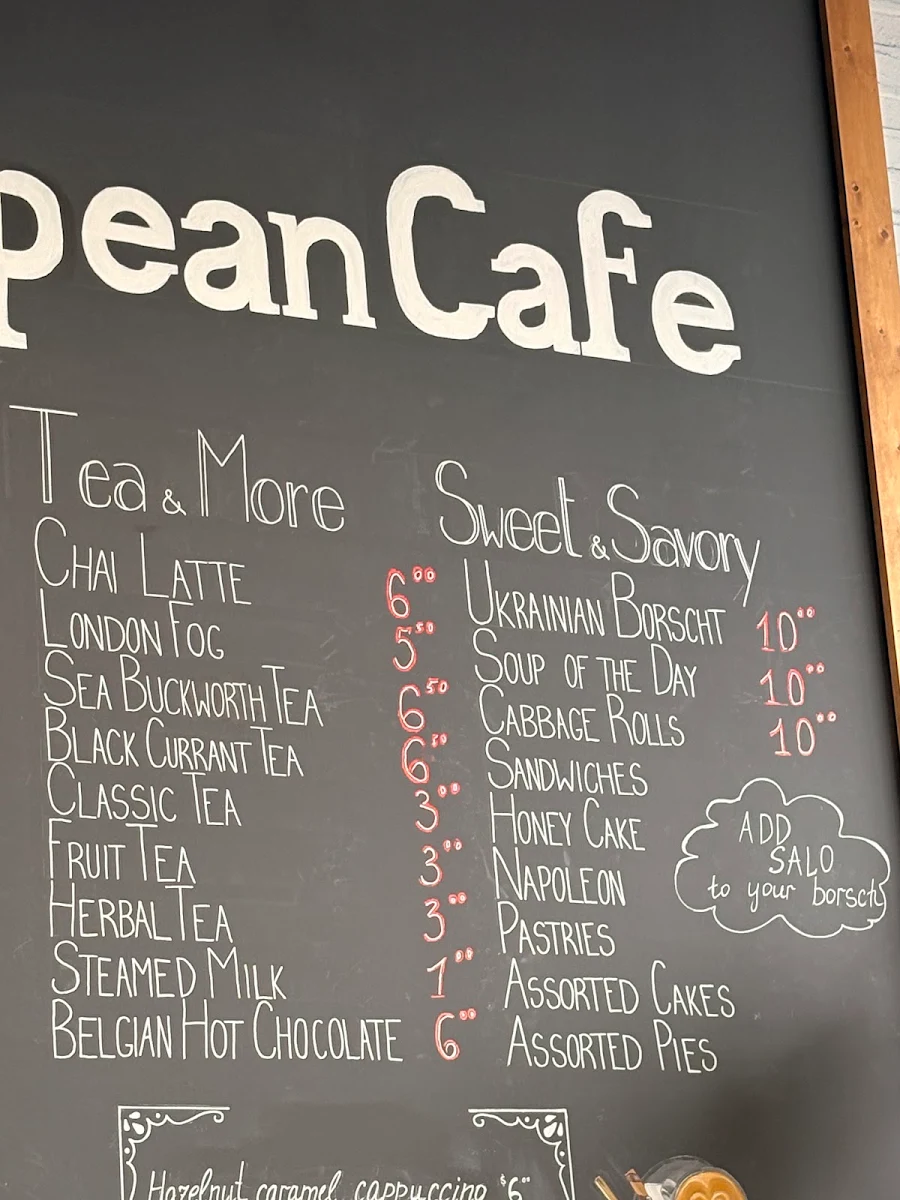 pean Cafe
Tea & More
CHAI LATTE 6.00
LONDON FOG 5.50
SEA BUCKWORTH TEA 6.50
BLACK CURRANT TEA 6.50
CLASSIC TEA 3.00
FRUIT TEA 3.00
HERBAL TEA 3.00
STEAMED MILK 1.00
BELGIAN HOT CHOCOLATE 6.00
Sweet & Savory
UKRAINIAN BORSCHT 10.00
SOUP OF THE DAY 10.00
CABBAGE ROLLS 10.00
SANDWICHES
HONEY CAKE
NAPOLEON
PASTRIES
ASSORTED CAKES
ASSORTED PIES
ADD
SALO
to your borscht
Hazelnut caramel cappuccino $6.00